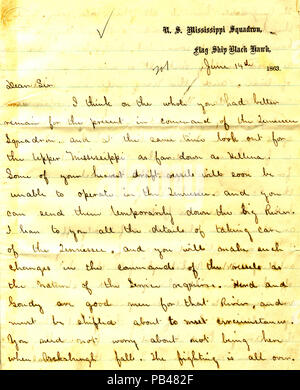 U. S. Mississippi Squadron,
Flag Ship Black Hawk,
June 14th 1863.
Dear Sir
I think on the whole you had better
remain for the present in command of the Tennessee
Squadron, and at the same time look out for
the Upper Mississippi as far down as Helena.
Some of your heaviest draft vessels will soon be
unable to operate in the Tennessee, and you
can send them temporarily down the big River.
I leave to you all the details of taking care
of the Tennessee, and you will make such
changes in the command of the vessels as
the nature of the Service requires. Hurd and
Goudy are good men for that River, and
must be shifted about to meet circumstances.
You need not worry about not being here
when Vicksburgh falls. The fighting is all over.
alamy
PB482F